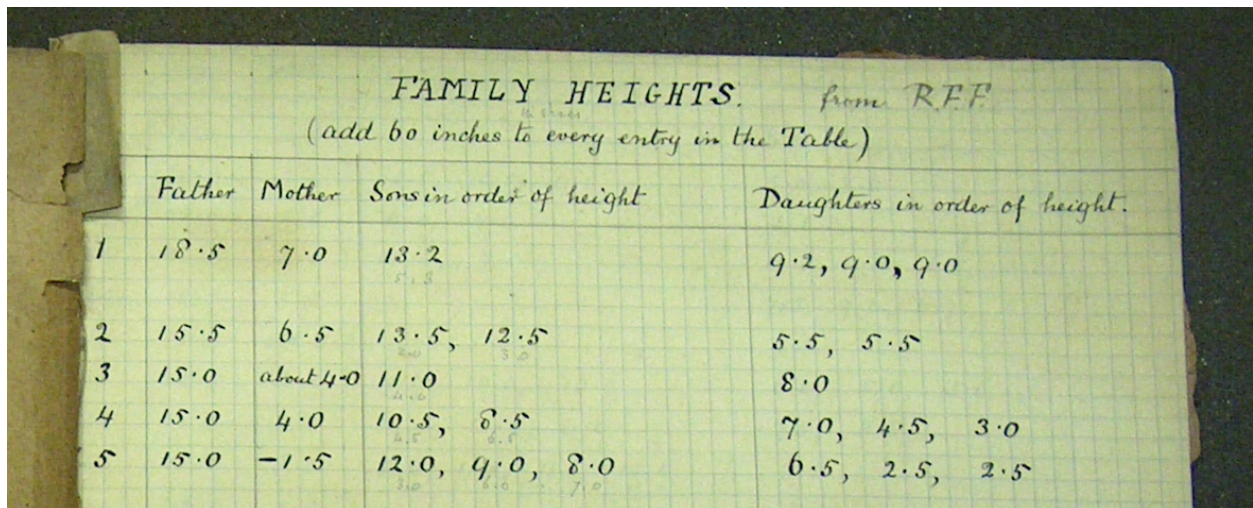 FAMILY HEIGHTS. from R.F.F.
(add 60 inches to every entry in the Table)
Father Mother Sons in order of height Daughters in order of height.
1 18.5 7.0 13.2 9.2, 9.0, 9.0
5.3
2 15.5 6.5 13.5, 12.5 5.5, 5.5
3.0
3 15.0 about 4.0 11.0 8.0
4 15.0 4.0 10.5, 8.5 7.0, 4.5, 3.0
4.5 6.5
5 15.0 -1.5 12.0, 9.0, 8.0 6.5, 2.5, 2.5
3.0 6.0 7.0